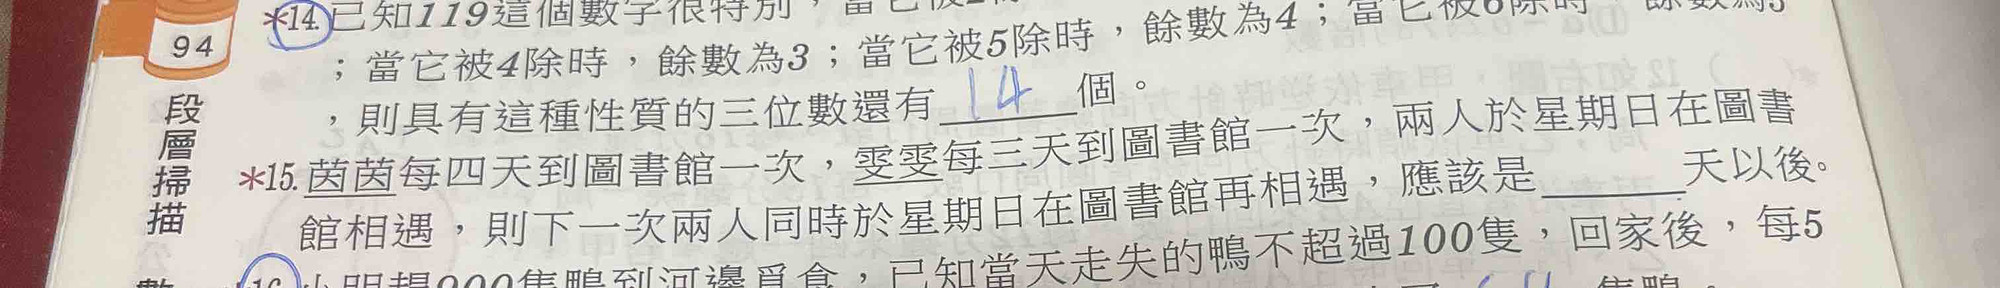 94
段層掃描
*14.已知119這個數字很特別，當它被
；當它被4除時，餘數為3；當它被5除時，餘數為4；當它被6除時，餘數為5
，則具有這種性質的三位數還有 14 個。
*15.茵茵每四天到圖書館一次，雯雯每三天到圖書館一次，兩人於星期日在圖書
館相遇，則下一次兩人同時於星期日在圖書館再相遇，應該是______天以後。
16.小明趕900隻鴨到河邊覓食，已知當天走失的鴨不超過100隻，回家後，每5
隻鴨。